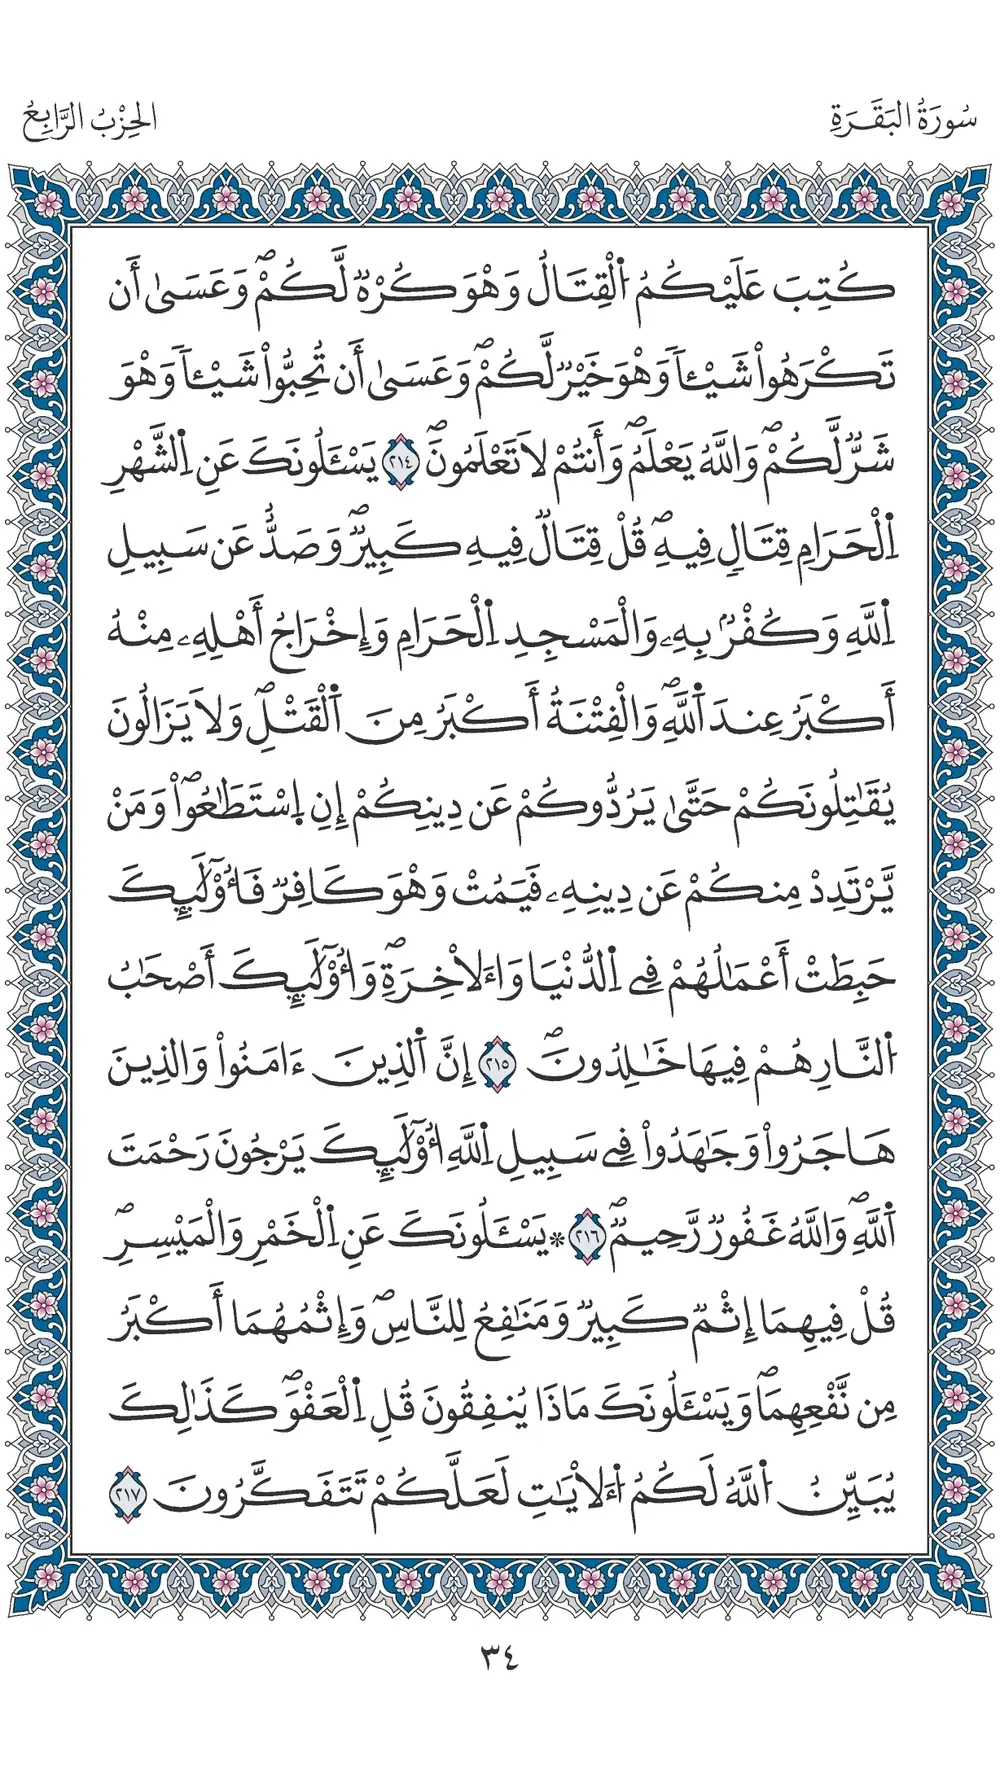 سُورَةُ البَقَرَةِ
الحِزْبُ الرَّابِعُ
كُتِبَ عَلَيْكُمُ اُ۬لْقِتَالُ وَهْوَ كُرْهٞ لَّكُمْۖ وَعَس۪ىٰٓ أَن
تَكْرَهُواْ شَيْـٔاٗ وَهْوَ خَيْرٞ لَّكُمْۖ وَعَس۪ىٰٓ أَن تُحِبُّواْ شَيْـٔاٗ وَهْوَ
شَرّٞ لَّكُمْۖ وَاللَّهُ يَعْلَمُۖ وَأَنتُمْ لَا تَعْلَمُونَۖ ٢١٤ يَسْـَٔلُونَكَ عَنِ اِ۬لشَّهْرِ
اِ۬لْحَرَامِ قِتَالٖ فِيهِۖ قُلْ قِتَالٞ فِيهِ كَبِيرٞۖ وَصَدٌّ عَن سَبِيلِ
اِ۬للَّهِ وَكُفْرُۢ بِهِۦ وَالْمَسْجِدِ اِ۬لْحَرَامِ وَإِخْرَاجُ أَهْلِهِۦ مِنْهُ
أَكْبَرُ عِندَ اَ۬للَّهِۖ وَالْفِتْنَةُ أَكْبَرُ مِنَ اَ۬لْقَتْلِۖ وَلَا يَزَالُونَ
يُقَٰتِلُونَكُمْ حَتَّىٰ يَرُدُّوكُمْ عَن دِينِكُمْ إِنِ اِ۪سْتَطَٰعُواْۖ وَمَنْ
يَّرْتَدِدْ مِنكُمْ عَن دِينِهِۦ فَيَمُتْ وَهْوَ كَافِرٞ فَأُوْلَٰٓئِكَ
حَبِطَتْ أَعْمَٰلُهُمْ فِے اِ۬لدُّنْيَا وَالَاخِرَةِۖ وَأُوْلَٰٓئِكَ أَصْحَٰبُ
اُ۬لنَّارِ هُمْ فِيهَا خَٰلِدُونَۖ ٢١٥ إِنَّ اَ۬لذِينَ ءَامَنُواْ وَالذِينَ
هَاجَرُواْ وَجَٰهَدُواْ فِے سَبِيلِ اِ۬للَّهِ أُوْلَٰٓئِكَ يَرْجُونَ رَحْمَتَ
اَ۬للَّهِۖ وَاللَّهُ غَفُورٞ رَّحِيمٞۖ ٢١٦ *يَسْـَٔلُونَكَ عَنِ اِ۬لْخَمْرِ وَالْمَيْسِرِۖ
قُلْ فِيهِمَا إِثْمٞ كَبِيرٞ وَمَنَٰفِعُ لِلنَّاسِۖ وَإِثْمُهُمَا أَكْبَرُ
مِن نَّفْعِهِمَاۖ وَيَسْـَٔلُونَكَ مَاذَا يُنفِقُونَ قُلِ اِ۬لْعَفْوَۖ كَذَٰلِكَ
يُبَيِّنُ اُ۬للَّهُ لَكُمُ اُ۬لَايَٰتِ لَعَلَّكُمْ تَتَفَكَّرُونَ ٢١٧
٣٤